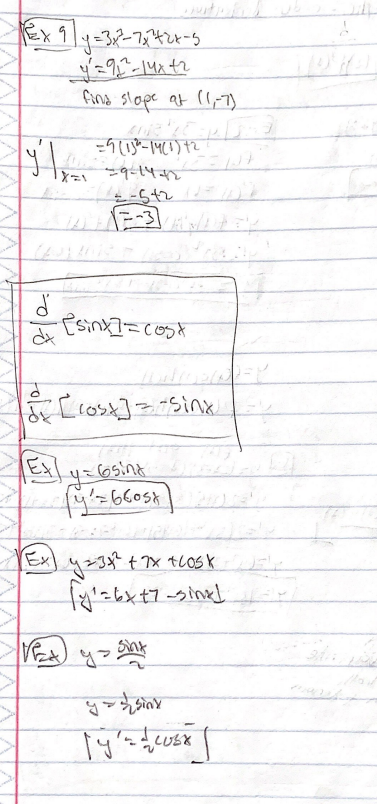 Ex 9 y=3x³-7x²+2x-5
y'=9x²-14x+2
find slope at (1,-7)
y'|x=1 =9(1)²-14(1)+2
=9-14+2
=-5+2
=-3
d/dx [sinx]=cosx
d/dx [cosx]=-sinx
Ex y=6sinx
y'=6cosx
Ex y=3x²+7x+cosx
y'=6x+7-sinx
Ex y=sinx/2
y=½sinx
y'=½cosx